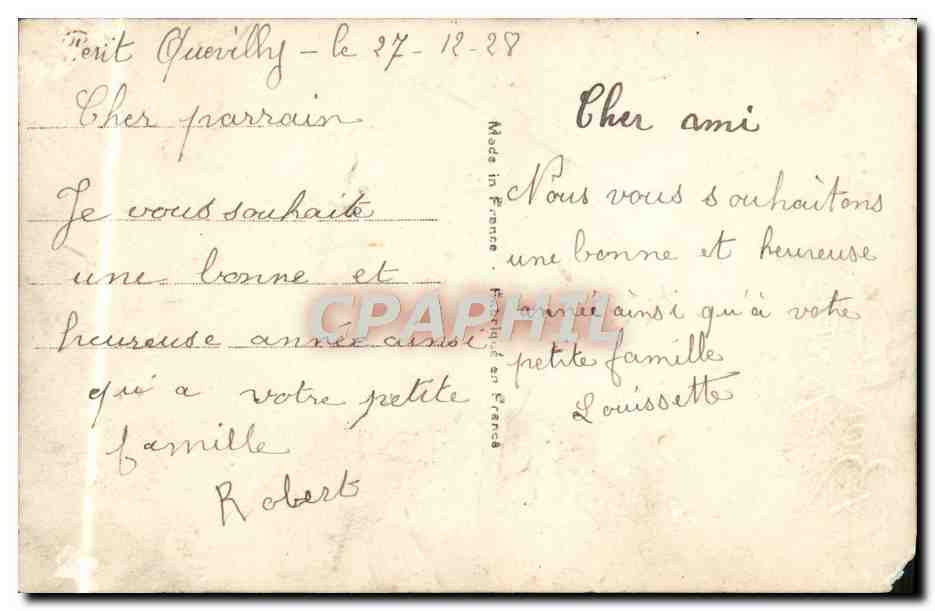 Petit Quevilly - le 27-12-28
Cher parrain
Je vous souhaite
une bonne et
heureuse année ainsi
qu'à votre petite
famille
Robert
Made in France - Fabriqué en France
Cher ami
Nous vous souhaitons
une bonne et heureuse
année ainsi qu'à votre
petite famille
Louissette
CPAPHIL